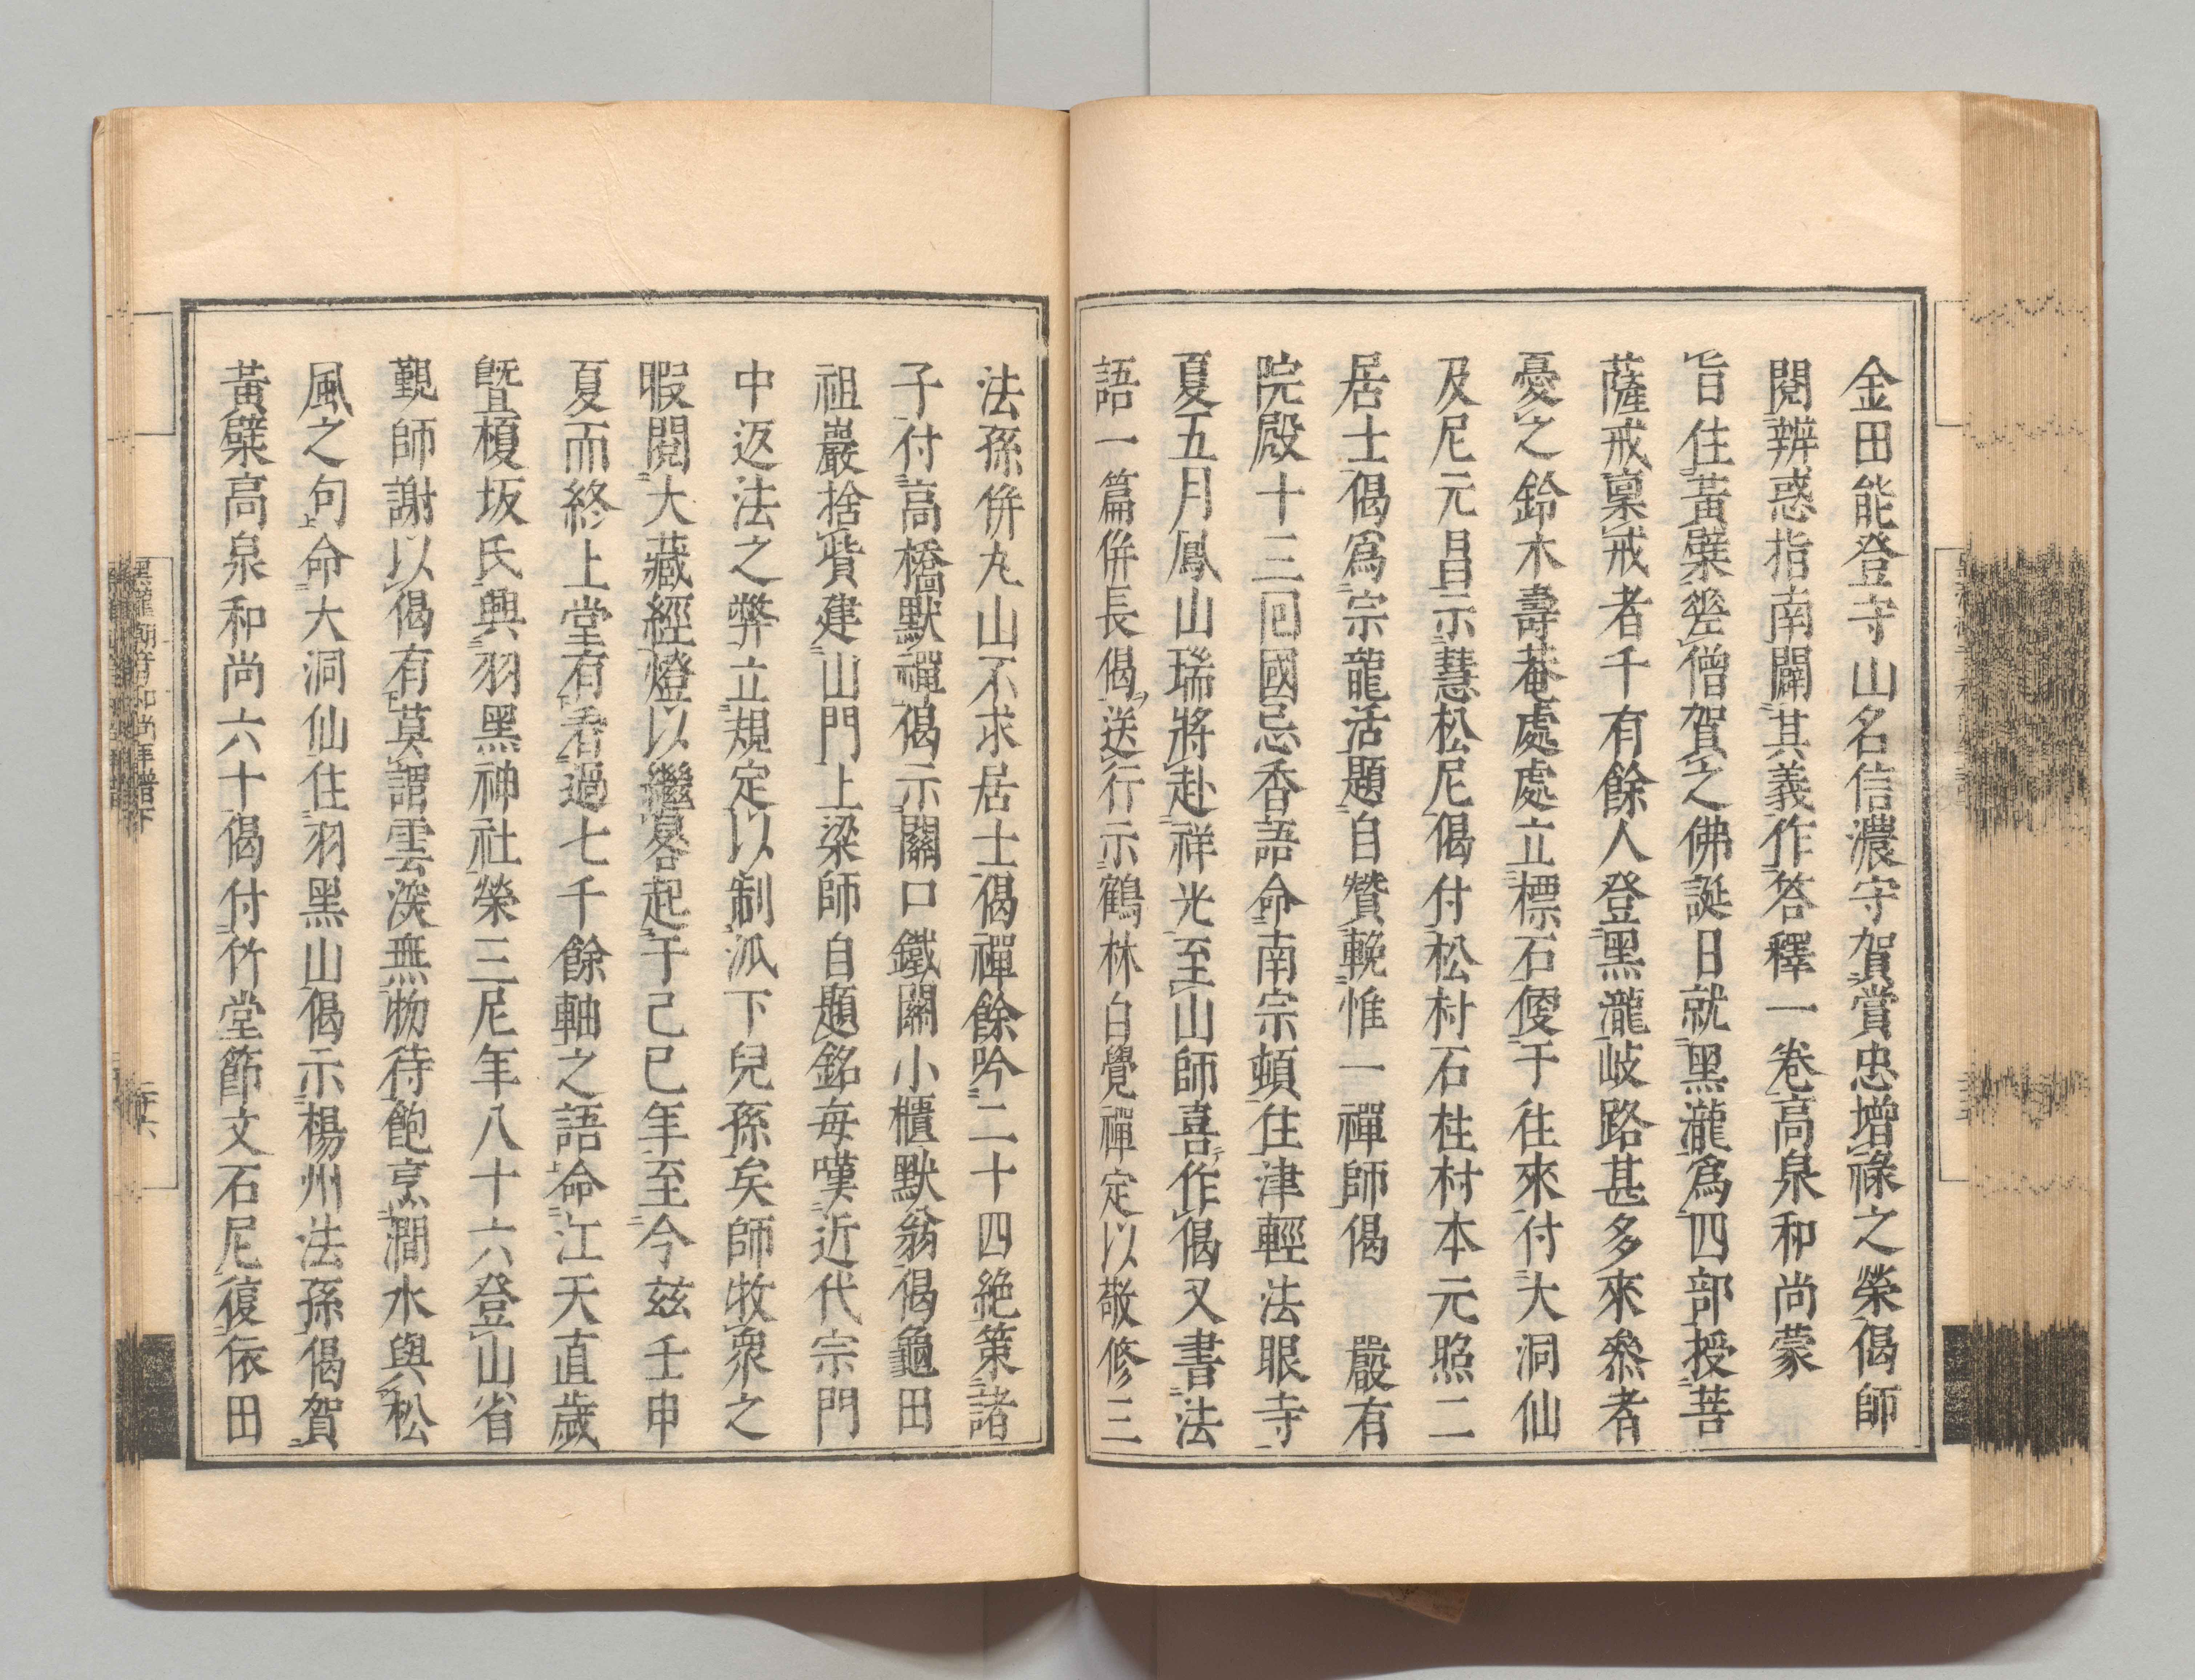 金田能登守山名信濃守賀賞忠增祿之榮偈師
閱辨惑指南闢其義作答釋一卷高泉和尚蒙
旨住黃檗差僧賀之佛誕日就黑瀧爲四部授菩
薩戒稟戒者千有餘人登黑瀧岐路甚多來叅者
憂之鈴木壽菴處處立標石便于往來付大洞仙
及尼元昌示慧松尼偈付松村石柱村本元照二
居士偈爲宗龍活題自贊輓惟一禪師偈　嚴有
院殿十三回國忌香語命南宗頓住津輕法眼寺
夏五月鳳山瑞將赴祥光至山師喜作偈又書法
語一篇倂長偈送行示鶴林白覺禪定以敬修三
法孫倂丸山不求居士偈禪餘吟二十四絶策諸
子付高橋默禪偈示關口鐵關小櫃默翁偈龜田
祖巖捨貲建山門上梁師自題銘每嘆近代宗門
中返法之弊立規定以制派下兒孫矣師牧衆之
暇閱大藏經燈以繼晷起于己巳年至今玆壬申
夏而終上堂有看過七千餘軸之語命江天直歲
暨榎坂氏興羽黑神社榮三尼年八十六登山省
覲師謝以偈有莫謂雲深無物待飽烹澗水與松
風之句命大洞仙住羽黑山偈示楊州法孫偈賀
黃檗高泉和尚六十偈付竹堂節文石尼復依田
黑瀧潮音和尚年譜下